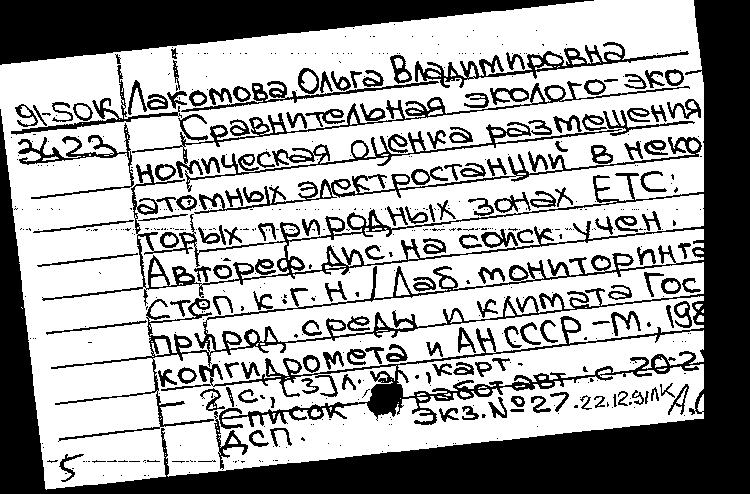 91-SOK Лакомова, Ольга Владимировна
3423 Сравнительная эколого-эко-
номическая оценка размещения
атомных электростанций в неко
торых природных зонах ЕТС:
Автореф. дис. на соиск. учен.
степ. к.г.н. / Лаб. мониторинга
природ. среды и климата Гос
комгидромета и АН СССР.-М., 198
- 21с., [3]л. ил., карт.
Список работ авт.: с. 20-21
ДСП. Экз. №27. 22.12.91
5